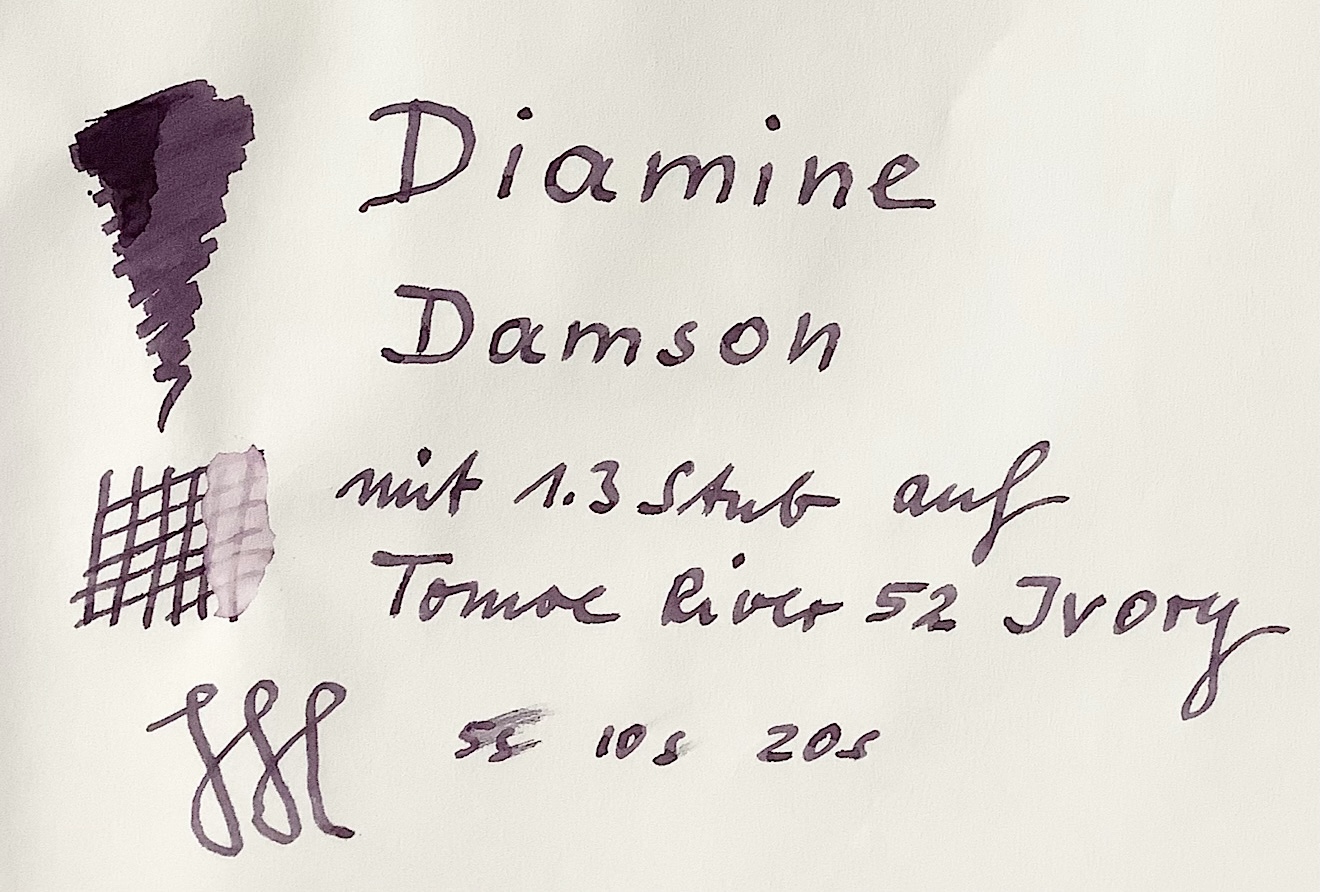 Diamine
Damson
mit 1.3 Stub auf
Tomoe River 52 Ivory
5s 10s 20s